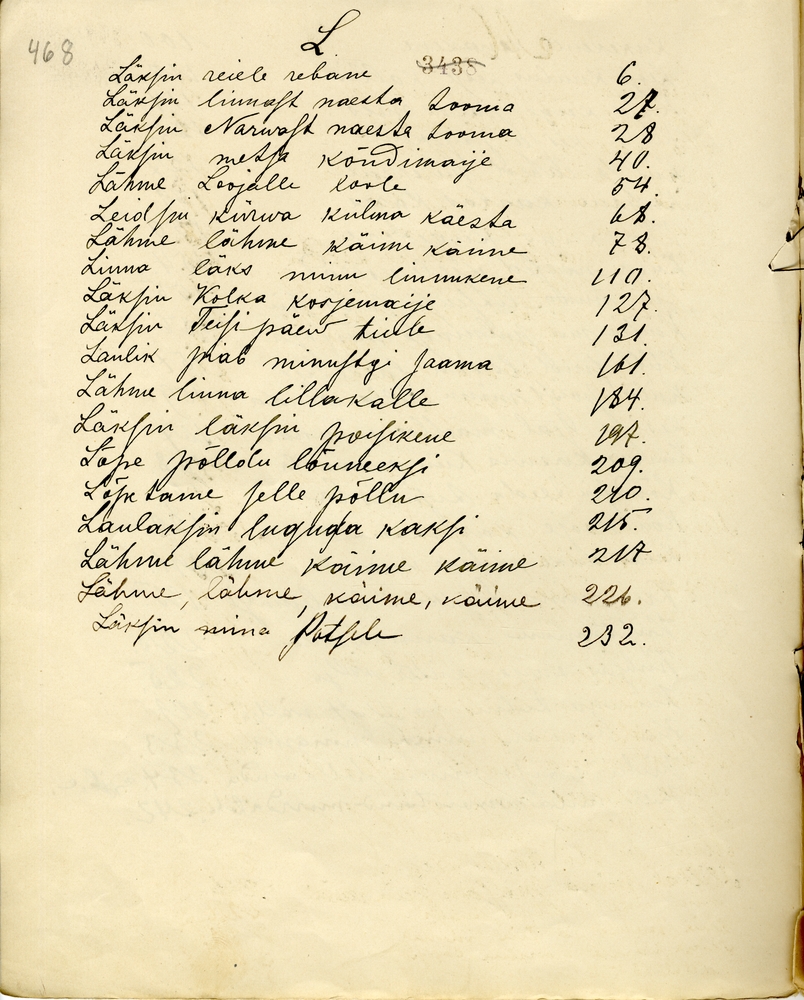 468
L
3438
Läksin reiele rebane 6.
Läksin linnast naesta tooma 27.
Läksin Narwast naesta tooma 28
Läksin metsa kõndimaije 40.
Lähme Loojalle loole 54.
Leidsin kürwa külma käesta 68.
Lähme lähme käime käime 78.
Linna läks minu linnukene 110.
Läksin Kolka kosjemaije 127.
Läksin Teisipäew tiule 131.
Laulik piab minustgi saama 161.
Lähme linna lillakalle 184.
Läksin läksin poisikene 197.
Lope põlldu lõuneeksi 209.
Lõpetame selle põllu 210.
Laulaksin luguda kaksi 215.
Lähme lähme käime käime 217
Lähme, lähme, käime, käime 226.
Läksin mina Potsele 232.